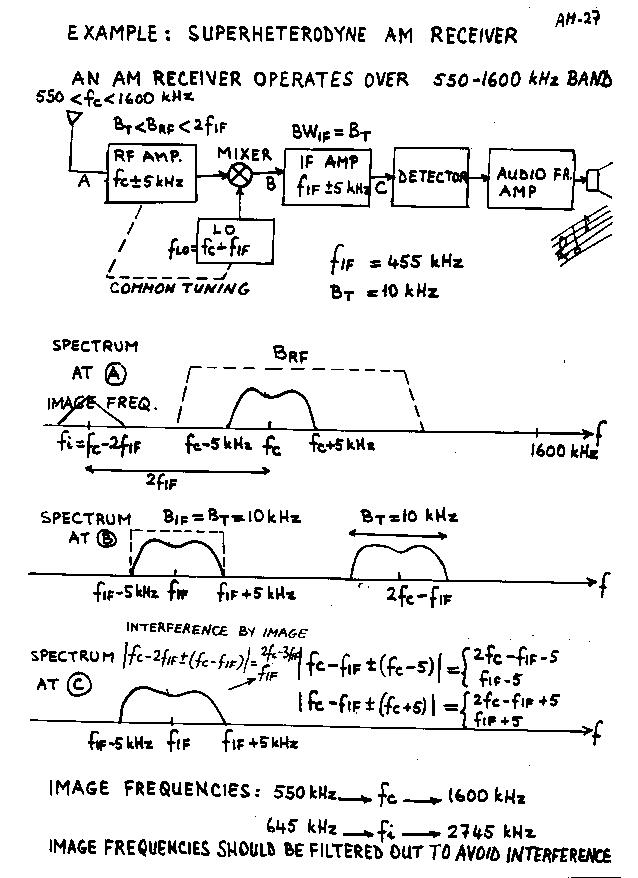 AM-27
EXAMPLE: SUPERHETERODYNE AM RECEIVER
AN AM RECEIVER OPERATES OVER 550-1600 kHz BAND
550 <fc<1600 kHz
BT<BRF<2fIF
BWIF=BT
RF AMP.
fc±5kHz
MIXER
IF AMP
fIF ±5kHz
DETECTOR
AUDIO FR.
AMP
A
B
C
LO
fLO=fc-fIF
COMMON TUNING
fIF = 455 kHz
BT = 10 kHz
SPECTRUM
AT A
BRF
IMAGE FREQ.
fi=fc-2fIF
fc-5kHz
fc
fc+5kHz
1600 kHz
f
2fIF
SPECTRUM
AT B
BIF=BT=10kHz
BT=10 kHz
fIF-5kHz
fIF
fIF+5kHz
2fc-fIF
f
INTERFERENCE BY IMAGE
SPECTRUM
AT C
|fc-2fIF±(fc-fIF)|=2fc-3fIF
fIF
|fc-fIF±(fc-5)|={2fc-fIF-5
fIF-5
|fc-fIF±(fc+5)|={2fc-fIF+5
fIF+5
fIF-5kHz
fIF
fIF+5kHz
f
IMAGE FREQUENCIES: 550kHz → fc → 1600 kHz
645 kHz → fi → 2745 kHz
IMAGE FREQUENCIES SHOULD BE FILTERED OUT TO AVOID INTERFERENCE